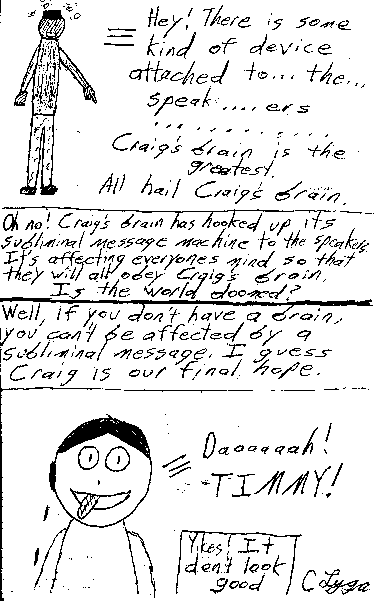 Hey! There is some
kind of device
attached to... the...
speak.....ers
............
Craig's brain is the
greatest.
All hail Craig's brain.
Oh no! Craig's brain has hooked up its
subliminal message machine to the speakers.
It's affecting everyones mind so that
they will all obey Craig's brain.
Is the world doomed?
Well, if you don't have a brain,
you can't be affected by a
subliminal message. I guess
Craig is our final hope.
Daaaaaah!
TIMMY!
Ykes! It
don't look
good
C Lyga